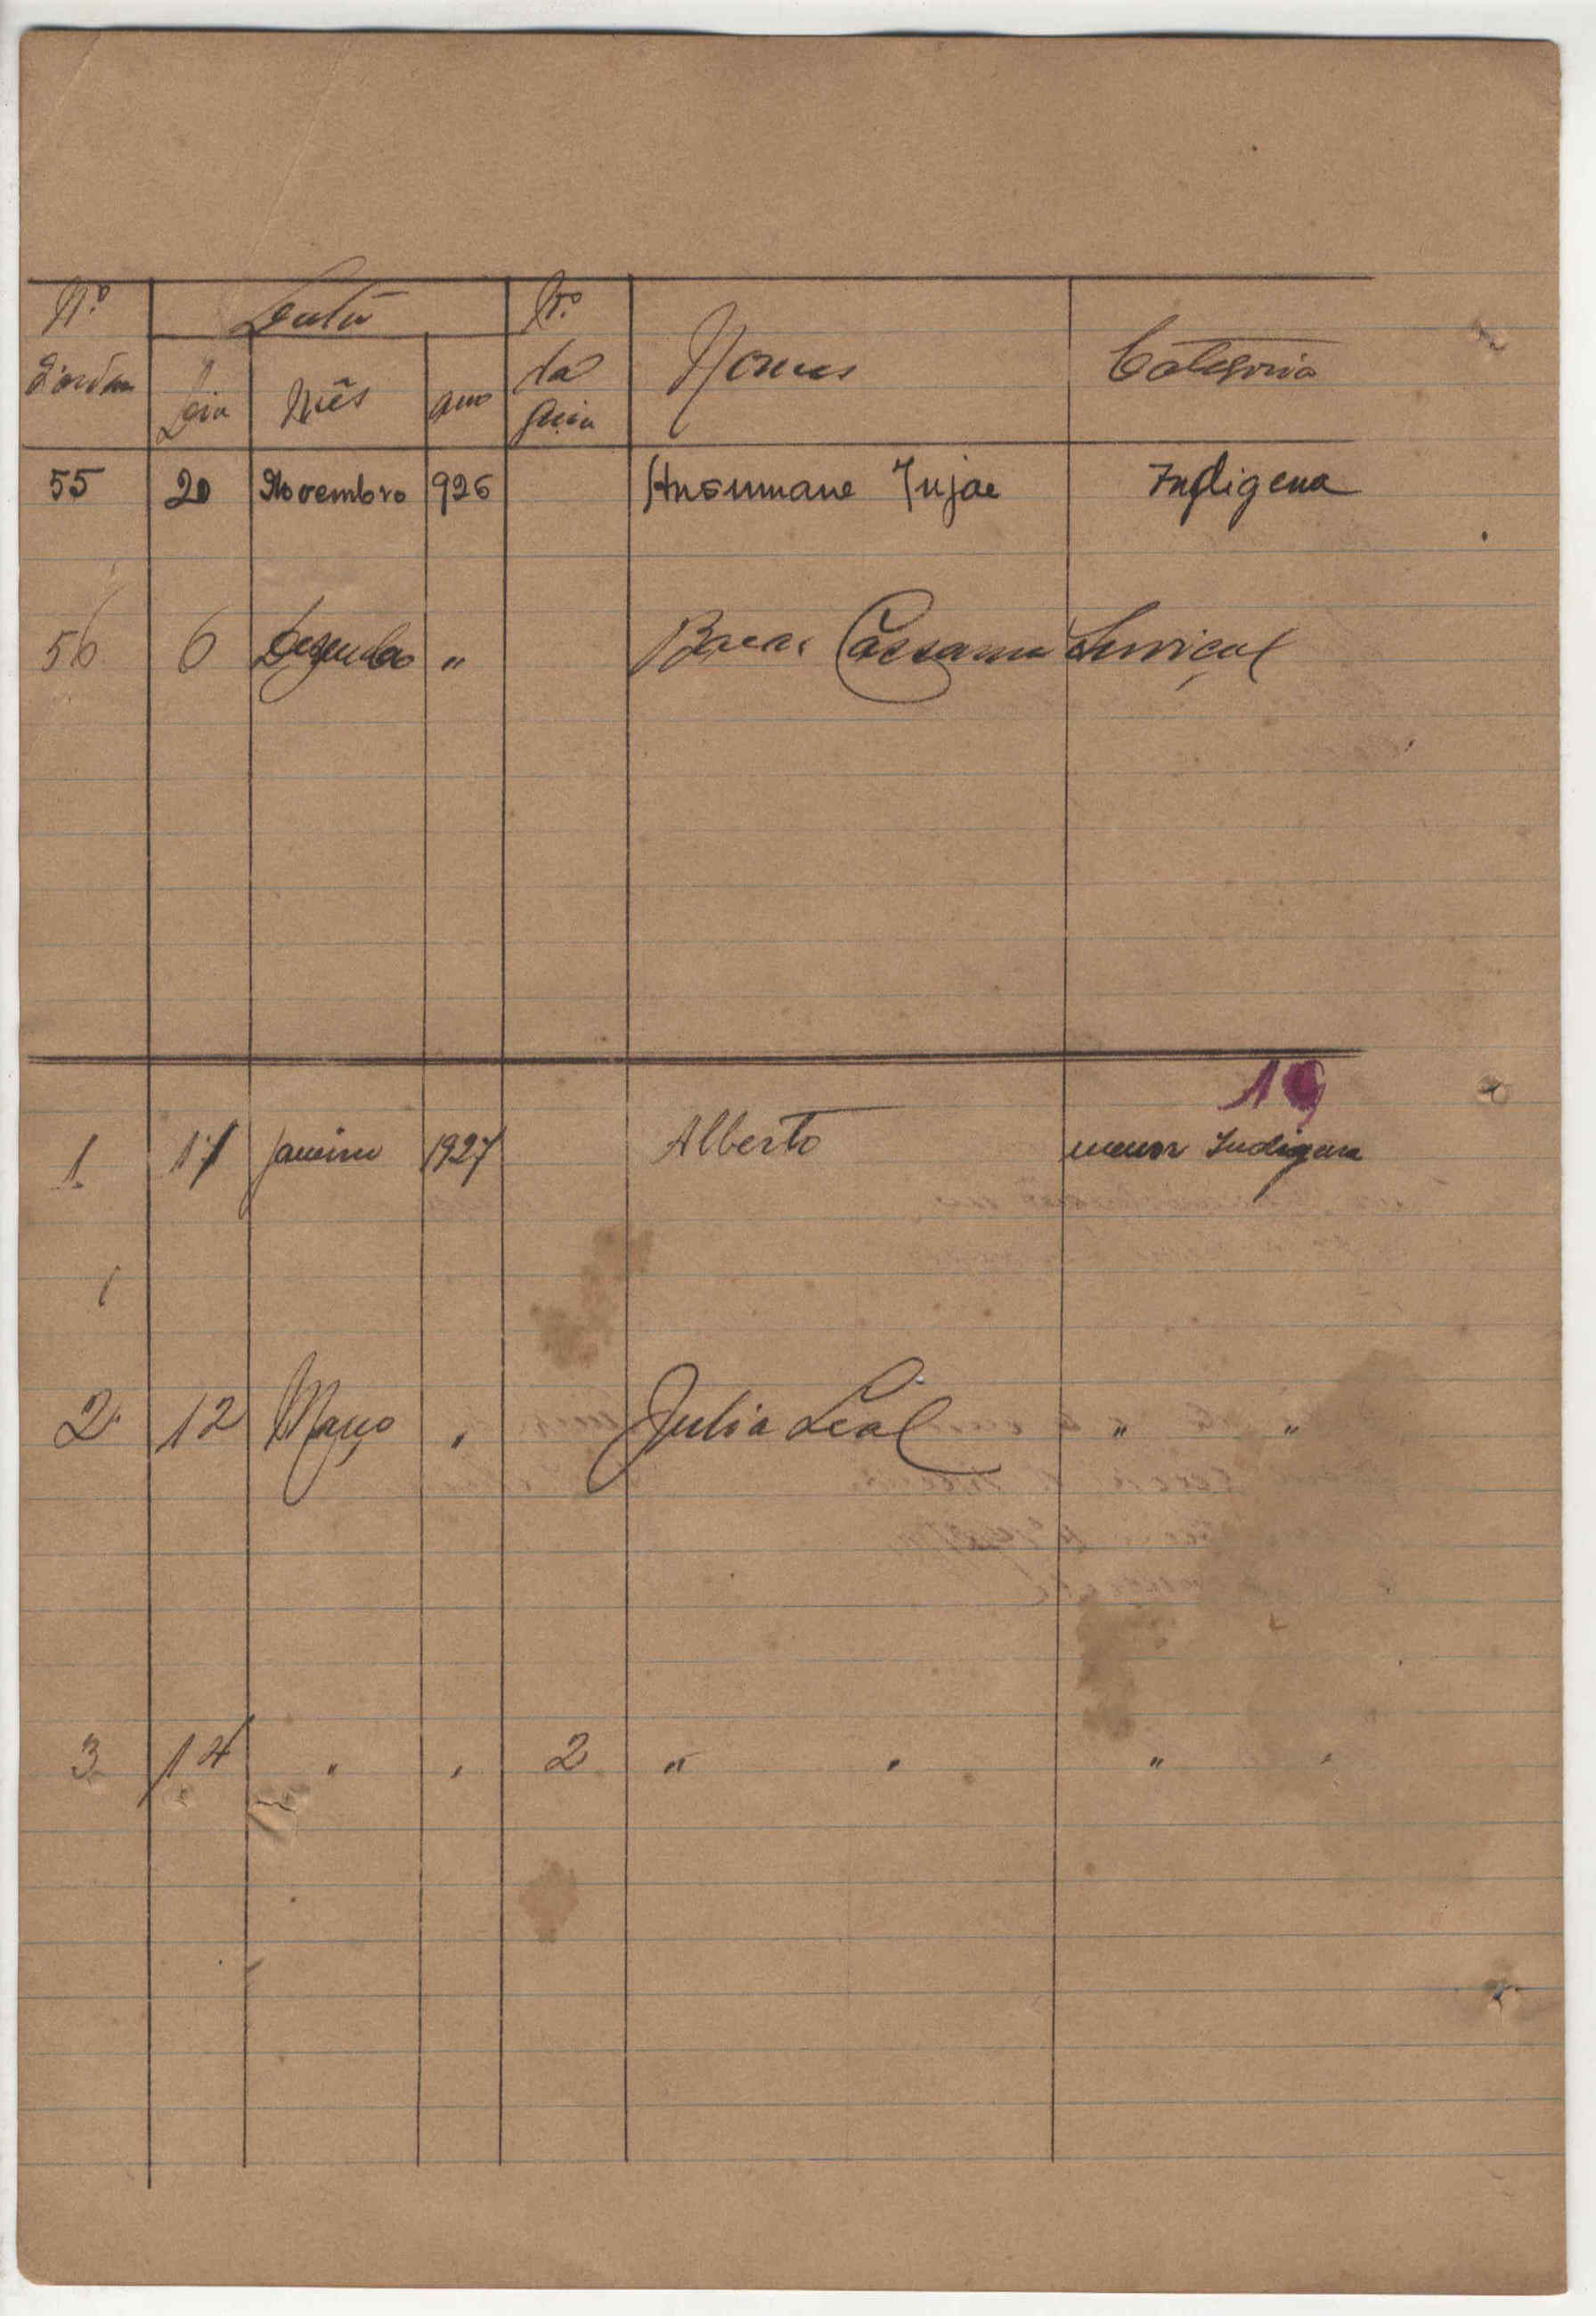 Nº Data Nº
d'ordem Dia Mês ano da guia Nomes Categoria
55 20 Novembro 926 Ansumane Injae Indigena
56 6 Dezembro " Bacar Cassama Serviçal
19
1 17 Janeiro 1927 Alberto menor Indigena
2 12 Março " Julia Leal " "
3 14 " " 2 " " " "